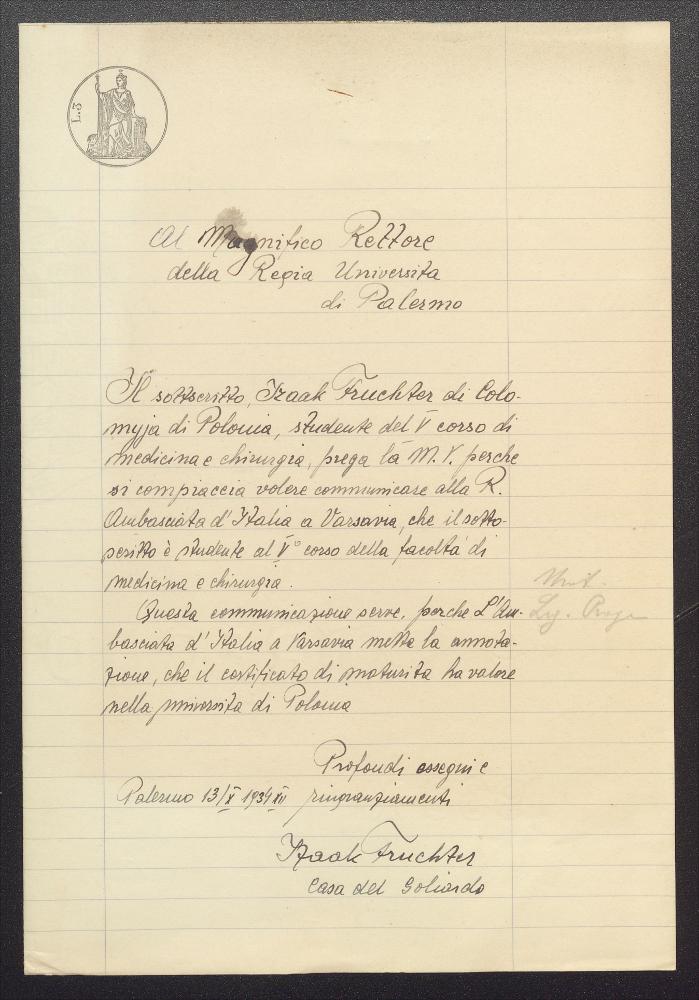 L.3
Al Magnifico Rettore
della Regia Universita
di Palermo
Il sottscritto, Izaak Fruchter di Colo-
myja di Polonia, studente del V corso di
medicina e chirurgia, prega la M.V. perche
si compiaccia volere communicare alla R.
Ambasciata d'Italia a Varsavia, che il sotto-
scritto è studente al V° corso della facoltà di
medicina e chirurgia.
Questa communicazione serve, perche L'Am-
basciata d'Italia a Varsavia mette la annota-
zione, che il certificato di maturita ha valore
nella università di Polonia
Profondi ossequi e
Palermo 13/X 1934 XII ringranziamenti
Izaak Fruchter
Casa del Goliardo